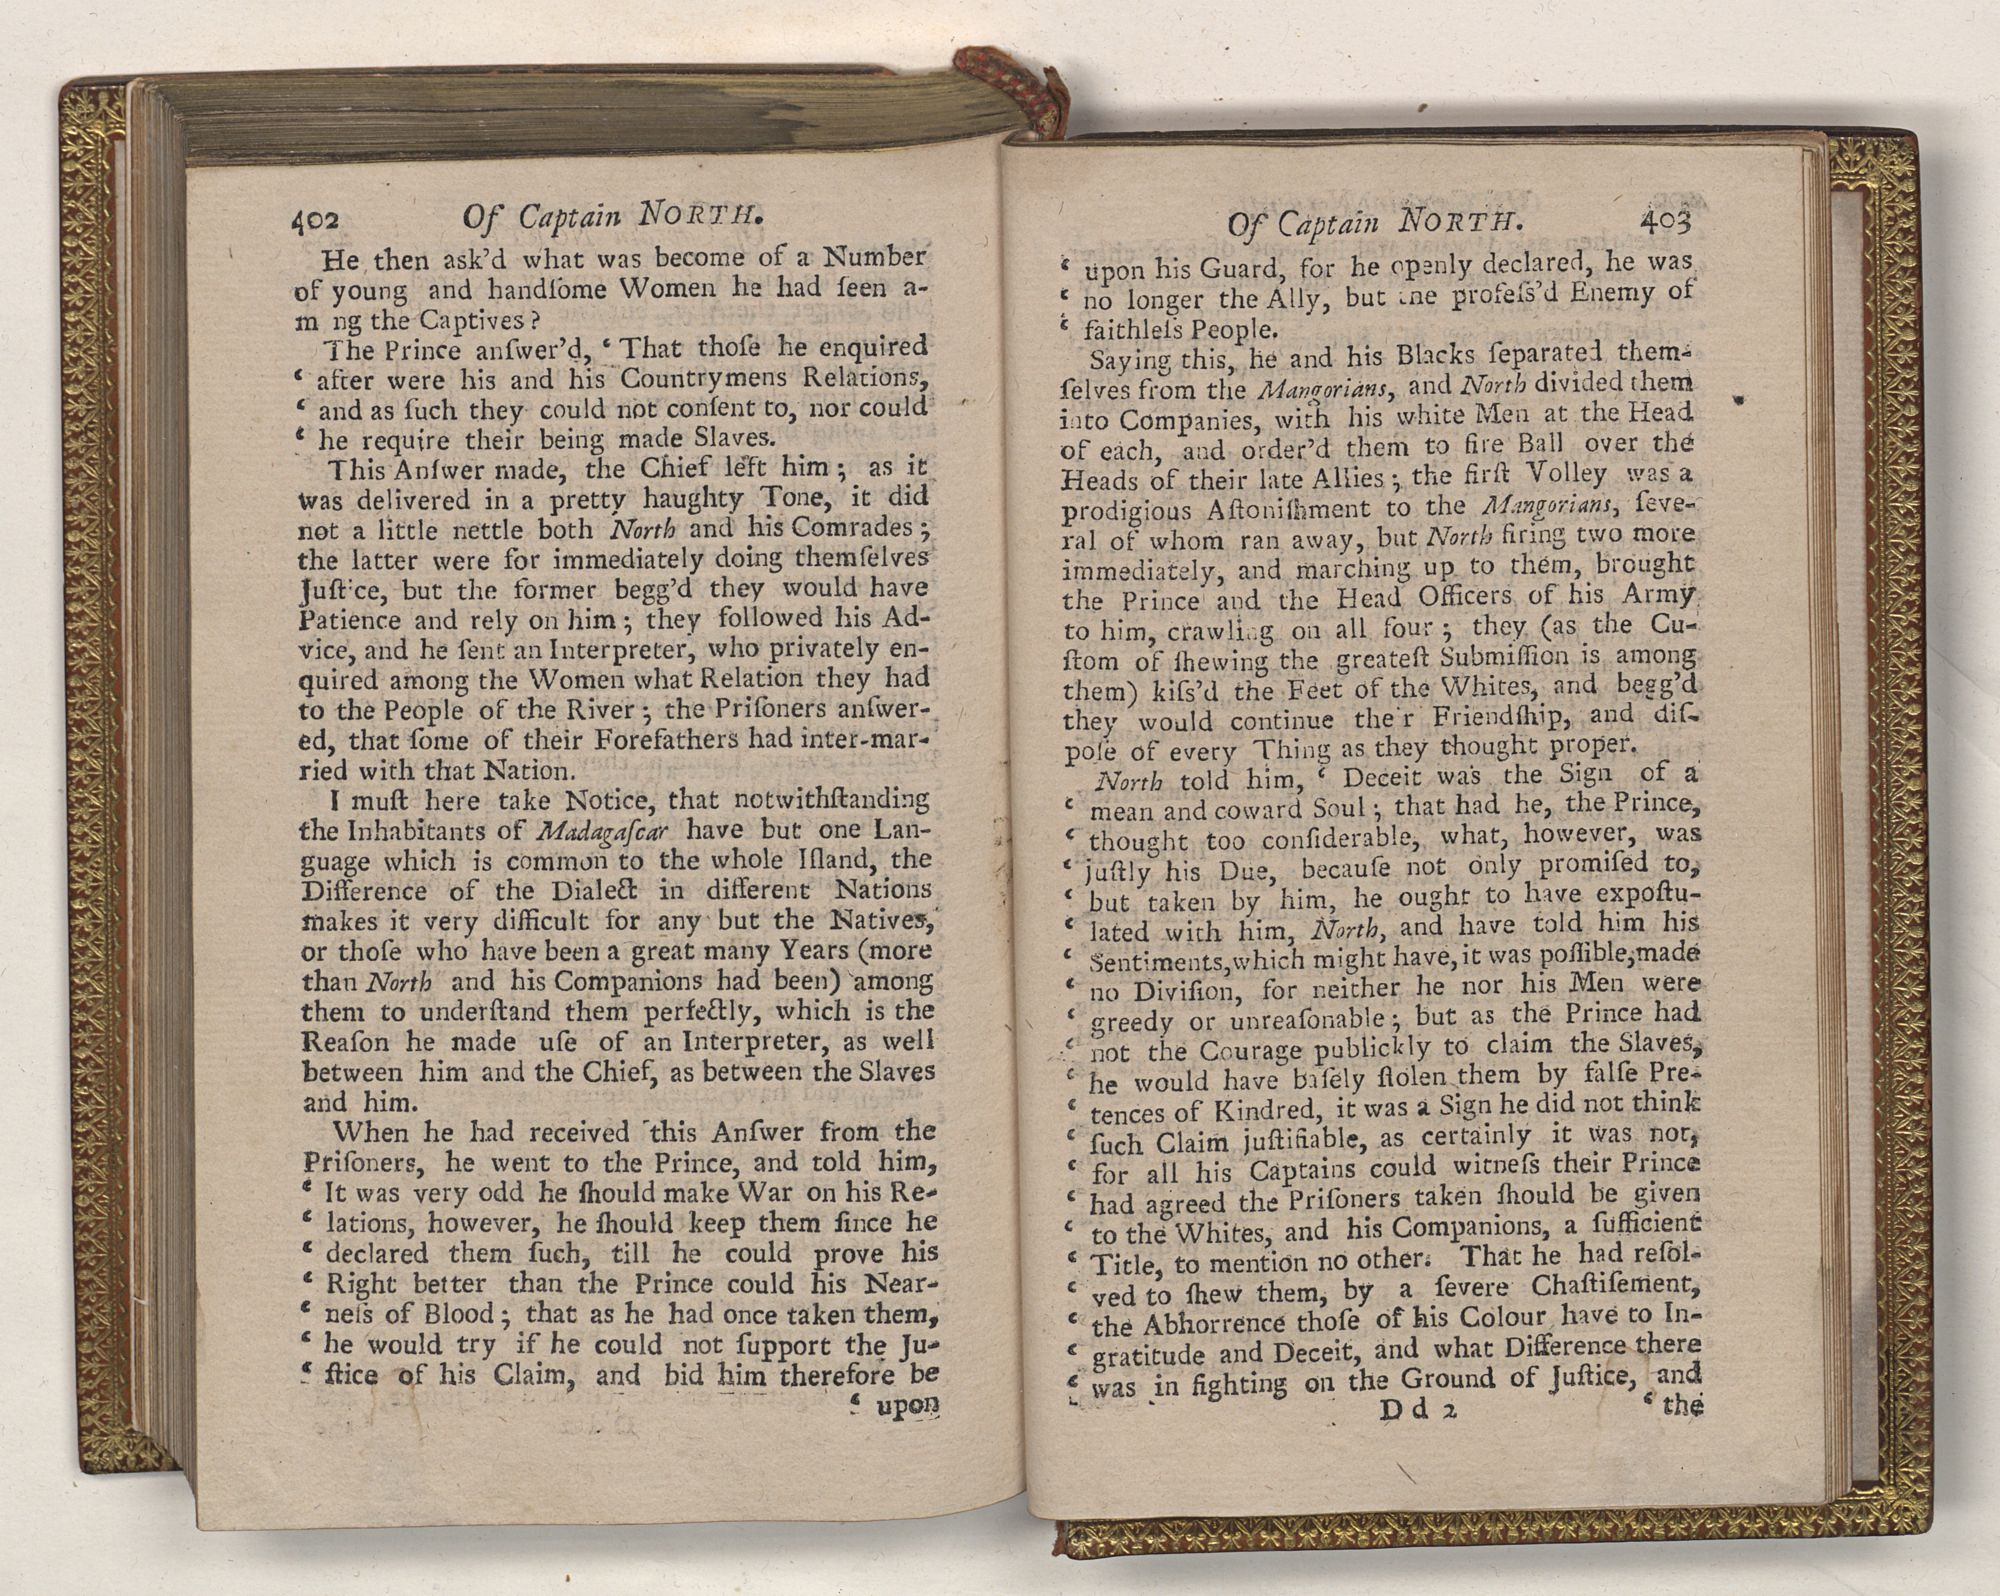 402 Of Captain NORTH.
He then ask'd what was become of a Number
of young and handſome Women he had ſeen a-
m ng the Captives?
The Prince anſwer'd, ‘ That thoſe he enquired
‘ after were his and his Countrymens Relations,
‘ and as ſuch they could not conſent to, nor could
‘ he require their being made Slaves.
This Anſwer made, the Chief left him; as it
was delivered in a pretty haughty Tone, it did
not a little nettle both North and his Comrades;
the latter were for immediately doing themſelves
Juſtice, but the former begg'd they would have
Patience and rely on him; they followed his Ad-
vice, and he ſent an Interpreter, who privately en-
quired among the Women what Relation they had
to the People of the River; the Priſoners anſwer-
ed, that ſome of their Forefathers had inter-mar-
ried with that Nation.
I muſt here take Notice, that notwithſtanding
the Inhabitants of Madagaſcar have but one Lan-
guage which is common to the whole Iſland, the
Difference of the Dialect in different Nations
makes it very difficult for any but the Natives,
or thoſe who have been a great many Years (more
than North and his Companions had been) among
them to underſtand them perfectly, which is the
Reaſon he made uſe of an Interpreter, as well
between him and the Chief, as between the Slaves
and him.
When he had received this Anſwer from the
Priſoners, he went to the Prince, and told him,
‘ It was very odd he ſhould make War on his Re-
‘ lations, however, he ſhould keep them ſince he
‘ declared them ſuch, till he could prove his
‘ Right better than the Prince could his Near-
‘ neſs of Blood; that as he had once taken them,
‘ he would try if he could not ſupport the Ju-
‘ ſtice of his Claim, and bid him therefore be
‘ upon
Of Captain NORTH. 403
‘ upon his Guard, for he openly declared, he was
‘ no longer the Ally, but the profeſs'd Enemy of
‘ faithleſs People.
Saying this, he and his Blacks ſeparated them-
ſelves from the Mangorians, and North divided them
into Companies, with his white Men at the Head
of each, and order'd them to fire Ball over the
Heads of their late Allies; the firſt Volley was a
prodigious Aſtoniſhment to the Mangorians, ſeve-
ral of whom ran away, but North firing two more
immediately, and marching up to them, brought
the Prince and the Head Officers of his Army
to him, crawling on all four; they (as the Cu-
ſtom of ſhewing the greateſt Submiſſion is among
them) kiſs'd the Feet of the Whites, and begg'd
they would continue the r Friendſhip, and diſ-
poſe of every Thing as they thought proper.
North told him, ‘ Deceit was the Sign of a
‘ mean and coward Soul; that had he, the Prince,
‘ thought too conſiderable, what, however, was
‘ juſtly his Due, becauſe not only promiſed to,
‘ but taken by him, he ought to have expoſtu-
‘ lated with him, North, and have told him his
‘ Sentiments, which might have, it was poſſible, made
‘ no Diviſion, for neither he nor his Men were
‘ greedy or unreaſonable; but as the Prince had
‘ not the Courage publickly to claim the Slaves,
‘ he would have baſely ſtolen them by falſe Pre-
‘ tences of Kindred, it was a Sign he did not think
‘ ſuch Claim juſtifiable, as certainly it was not,
‘ for all his Captains could witneſs their Prince
‘ had agreed the Priſoners taken ſhould be given
‘ to the Whites, and his Companions, a ſufficient
‘ Title, to mention no other. That he had reſol-
‘ ved to ſhew them, by a ſevere Chaſtiſement,
‘ the Abhorrence thoſe of his Colour have to In-
‘ gratitude and Deceit, and what Difference there
‘ was in fighting on the Ground of Juſtice, and
D d 2 ‘ the